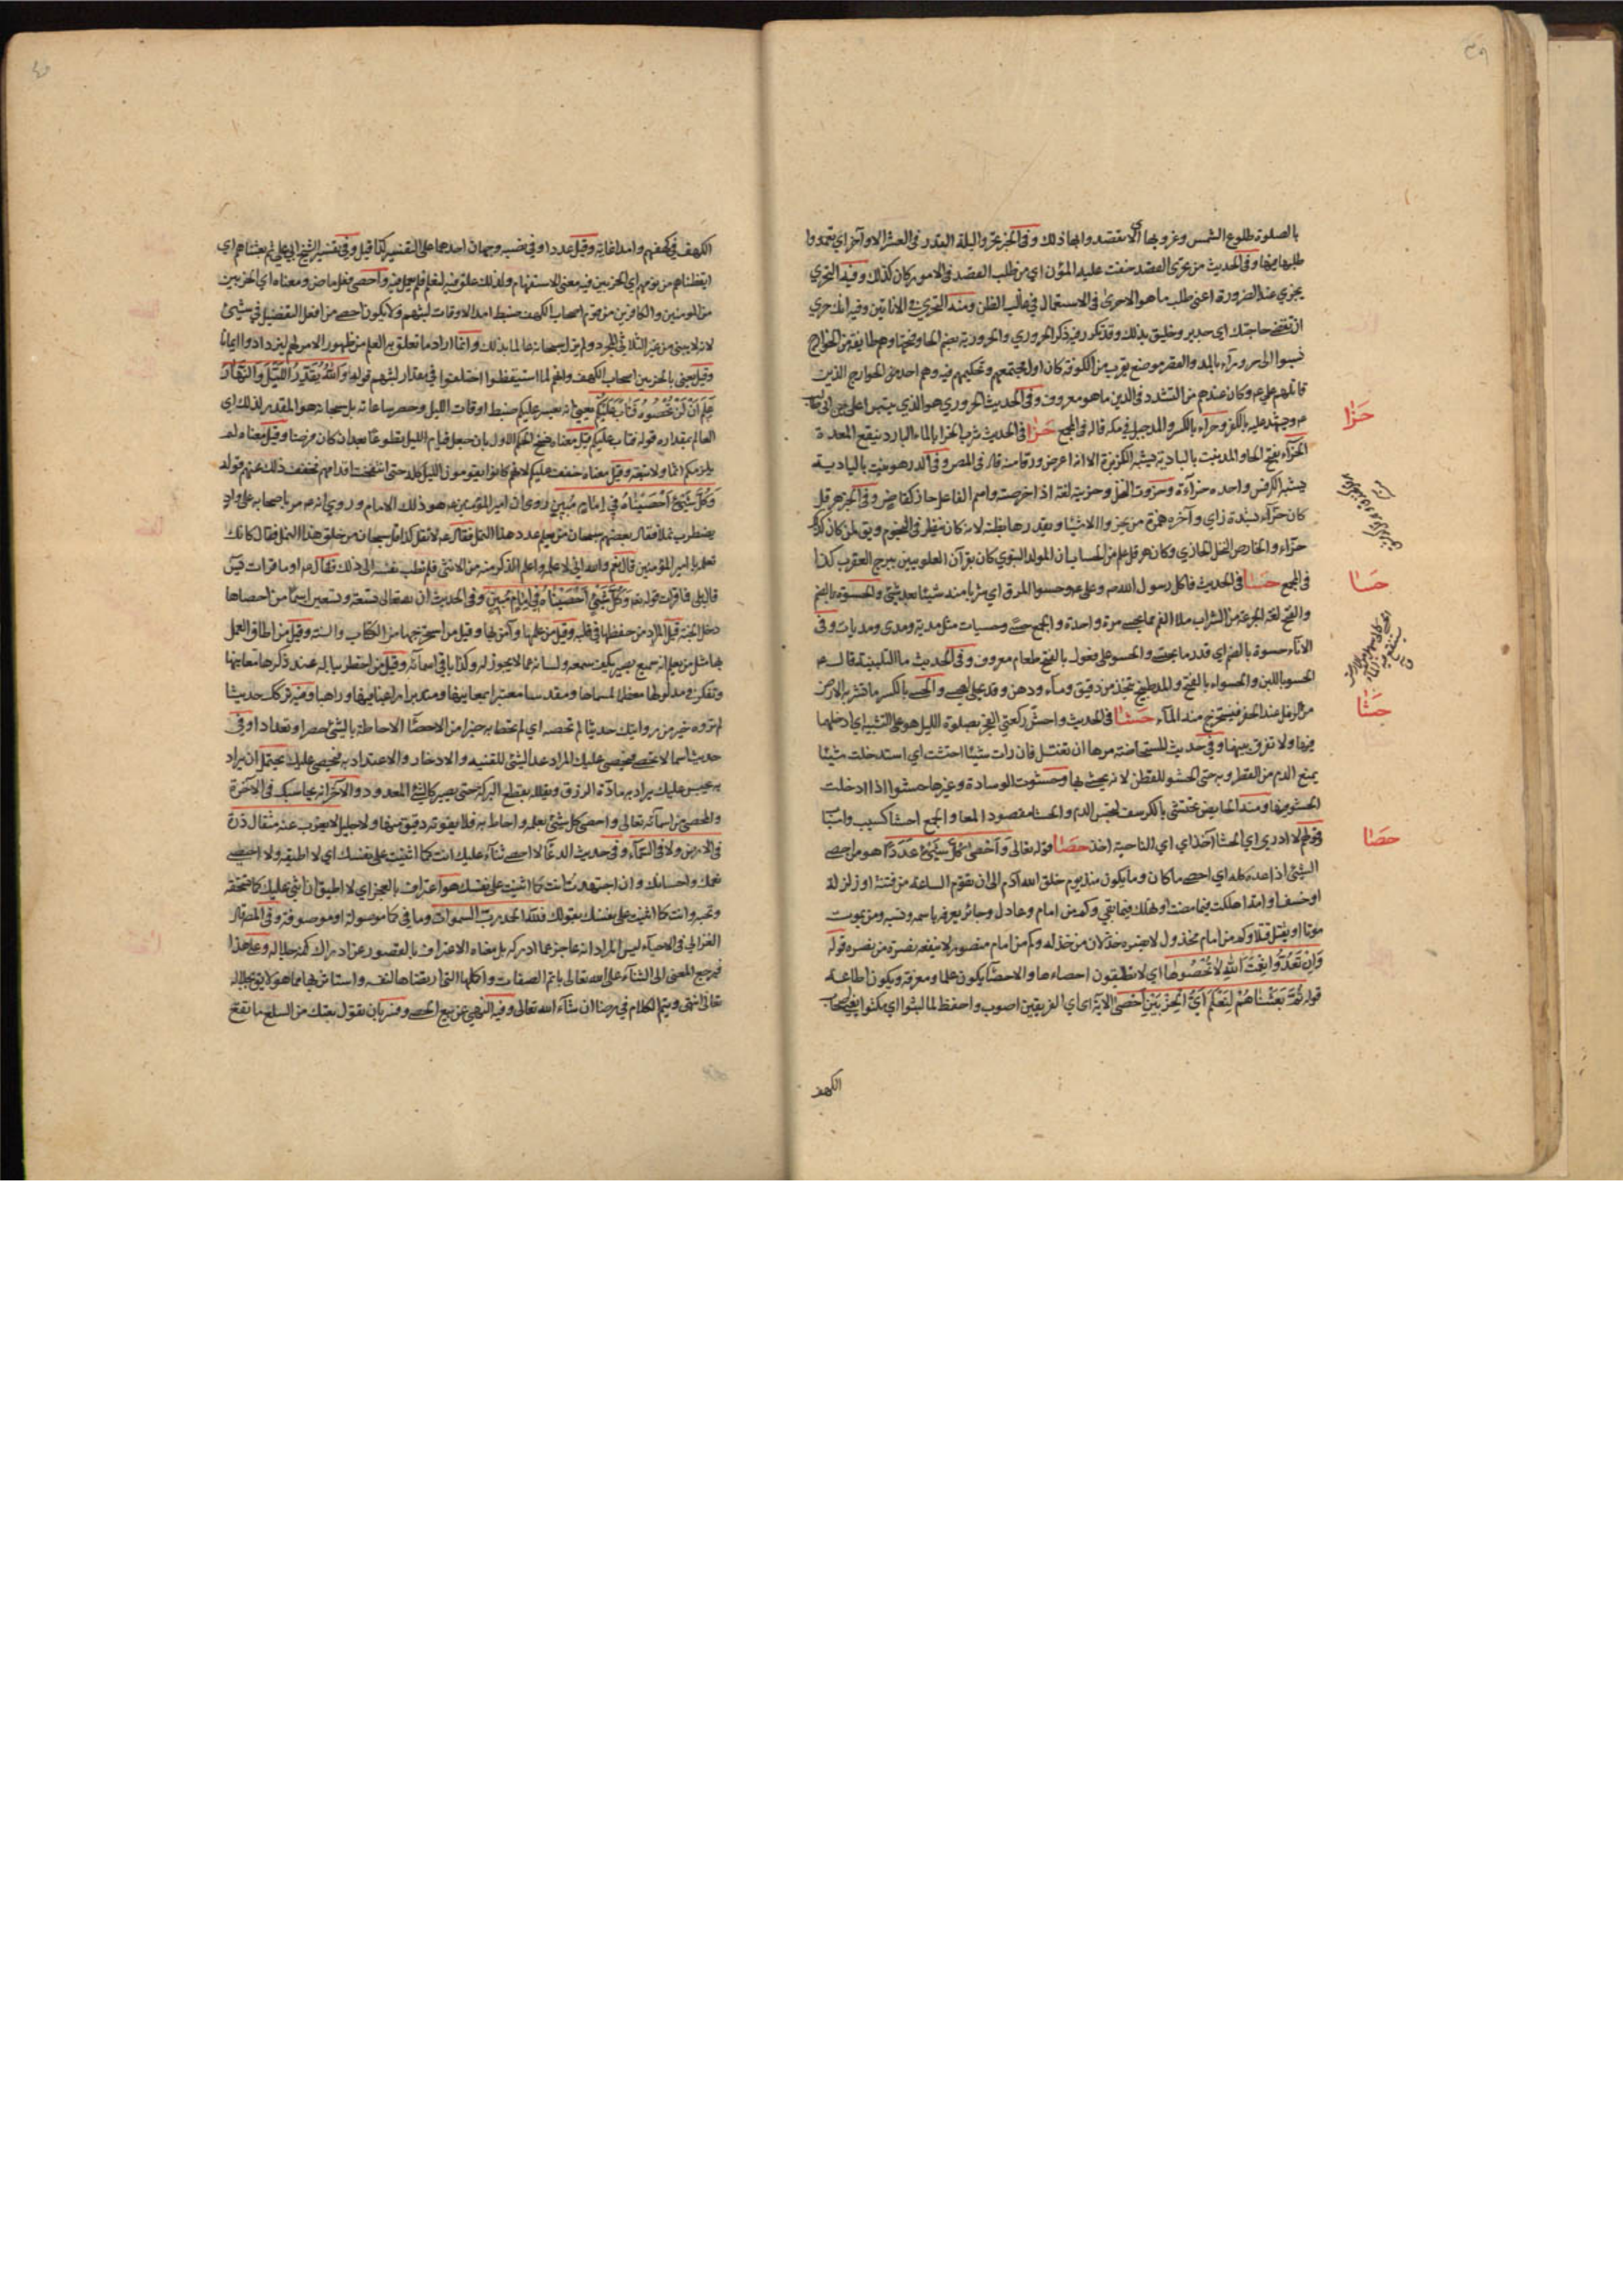 بالصلوة طلوع الشمس وغروبها اي لا تقصد وابها ذلك وفى الخبر تحروا ليلة القدر فى العشر الاواخر اي تعمدوا
طلبها فيها وفى الحديث من تحرى القصد خفت عليه المؤن اي من طلب القصد فى الامور كان كذلك وفيه التحري
يجزي عند الضرورة اعنى طلب ما هو الاحرى فى الاستعمال في غالب الظن ومنه التحري فى الانائين وفيه انك حري
ان تقضى حاجتك اي جدير وخليق بذلك وقد تكرر فيه ذكر الحروري والحرورية بضم الحاء وفتحها وهم طايفة من الخوارج
نسبوا الى حروراء بالمد والقصر موضع بقرب من الكوفة كان اول مجتمعهم وتحكيمهم فيه وهم احد من الخوارج الذين
قاتلهم علي ع وكان عندهم من التشدد فى الدين ما هو معروف وفى الحديث الحروري هو الذي يتبرا على
وحراء بالكسر والمد جبل في مكة قاله فى المجمع حزا فى الحديث شرب الحزا بالماء البارد ينفع المعدة
الحزاء بفتح الحاء والمد نبت بالبادية يشبه الكرفس الا انه اعرض ورقا منه قاله فى المص وفى الدر هو نبت بالبادية
يشبه الكرفس واحده حزاءة وحزوت النخل وحزيته لغة اذا خرصته واسم الفاعل حاز كقاض وفى الخبر هرقل
كان حزاء بشدة زاي وآخره همزة من يحزو الاشيا ويقدرها بظنه لانه كان ينظر فى النجوم ويق لمن كان كذلك
حزاء والخارص النخل الحازي وكان هرقل علم من الحساب ان المولد النبوي كان بقران العلويين ببرج العقرب كذا
فى المجمع حسا فى الحديث فاكل رسول الله ص وعلى ع وحسوا المرق اي شربا منه شيئا بعد شئ والحسوة بالضم
والفتح لغة الجرعة من الشراب ملا الفم مما يحسى مرة واحدة والجمع حسى وحسيات مثل مدية ومدى ومديات وفى
الاناء حسوة بالضم اي قدر ما يحسى والحسو على فعول بالفتح طعام معروف وفى الحديث ما التلبينة قال ع
الحسو باللبن والحسواء بالفتح والمد طبيخ يتخذ من دقيق وماء ودهن وقد يحلى والحسى بالكسر ما تشربه الارض
من الرمل عند الحفر فيستخرج منه الماء حشا فى الحديث واحش ركعتي الفجر بصلوة الليل هو على التشبيه اي ادخلهما
فيها ولا تفرق بينها وفى حديث المستحاضة مرها ان تغتسل فان رات شيئا احتشت اي استدخلت شيئا
يمنع الدم من القطر وبه حتى الحشو للقطن لانه يحشى بها وحشوت الوسادة وغيرها حشوا اذا ادخلت
الحشو فيها ومنه الحايض تحتشي بالكرسف لحبس الدم والحشا مقصود المعا والجمع احشا كسبب واسباب
وقولهم لا ادري اي الحشا اخذ اي اي الناحية اخذ حصا قوله تعالى وَاَحْصَى كُلَّ شَيْءٍ عَدَدًا هو من احصى
الشئ اذا عده كله اي احصى ما كان وما يكون منذ يوم خلق الله آدم الى ان تقوم الساعة من فتنة او زلزلة
او خسف او امة اهلكت فيما مضت او تهلك فيما بقي وكم من امام وعادل وجائر يعرفه باسمه ونسبه ومن يموت
موتا او يقتل قتلا وكم من امام مخذول لا يضره خذلان من خذله وكم من امام منصور لا ينفعه نصرة من نصره قوله
وَاِنْ تَعُدُّوا نِعْمَتَ اللهِ لَا تُحْصُوهَا اي لا تطيقون احصاءها والاحصاء يكون علما ومعرفة ويكون اطاقة
قوله ثُمَّ بَعَثْنَاهُمْ لِنَعْلَمَ اَيُّ الْحِزْبَيْنِ اَحْصَى الاية اي اي الفريقين اصوب واحفظ لما لبثوا اي مكثوا يعني اصحاب
الكهف
حزا
حسا
حشا
حصا
الكهف في كهفهم وامدا غاية وقيل عددا وفى نصبه وجهان احدهما على التفسير كذا قيل وفى تفسير الشيخ ابي علي ثم بعثناهم اي
ايقظناهم من نومهم اي الحزبين فيه معنى الاستفهام ولذلك علق فيه لنعلم فلم يعمل فيه واحصى فعل ماض ومعناه اي الحزبين
من المومنين والكافرين من قوم اصحاب الكهف ضبط امد الاوقات لبثهم ولا يكون احصى من افعل التفضيل في شئ
لانه لا يبنى من غير الثلاثي المجرد ولم يزل سبحانه عالما بذلك وانما اراد ما تعلق به العلم من ظهور الامر لهم ليزدادوا ايمانا
وقيل يعني بالحزبين اصحاب الكهف وانهم لما استيقظوا اختلفوا في مقدار لبثهم قوله وَاللهُ يُقَدِّرُ اللَّيْلَ وَالنَّهَارَ
عَلِمَ اَنْ لَنْ تُحْصُوهُ فَتَابَ عَلَيْكُمْ يعني انه يعسر عليكم ضبط اوقات الليل وحصر ساعاته بل سبحانه هو المقدر لذلك اي
العالم بمقداره قوله فتاب عليكم قيل معناه نسخ الحكم الاول بان جعل قيام الليل تطوعا بعد ان كان فرضا وقيل معناه لم
يلزمكم اثما ولا تبعة وقيل معناه خفف عليكم لانهم كانوا يقومون الليل كله حتى انتفخت اقدامهم فخفف ذلك عنهم قوله
وَكُلَّ شَيْءٍ اَحْصَيْنَاهُ فِي اِمَامٍ مُبِينٍ روى ان امير المؤمنين ع هو ذلك الامام وروي انه ع مر باصحابه على واد
يضطرب نملا فقال بعضهم سبحان من يعلم عدد هذا النمل فقال ع لا تقل كذا قل سبحان من خلق هذا النمل فقال كانك
تعلمه يا امير المؤمنين قال نعم والله اني لاعلمه واعلم الذكر منه من الانثى فلم تطب نفسه الى ذلك فقال ع اوما قرات يس
قال بلى فما قرات قوله تعالى وَكُلَّ شَيْءٍ اَحْصَيْنَاهُ فِي اِمَامٍ مُبِينٍ وفى الحديث ان لله تعالى تسعة وتسعين اسما من احصاها
دخل الجنة قيل المراد من حفظها في قلبه وقيل من علمها وآمن بها وقيل من استخرجها من الكتاب والسنة وقيل من اطاق العمل
بها مثل من يعلم انه سميع بصير يكف سمعه ولسانه عما لا يجوز له وكذا باقي اسمائه وقيل من اخطر بباله عند ذكرها معانيها
وتفكر في مدلولها معظما لمسماها ومقدسا معتبرا بمعانيها ومتدبرا راغبا فيها وراهبا وفيه تركك حديثا
لم تروه خير من روايتك حديثا لم تحصه اي لم تحط به خبرا من الاحصا الاحاطة بالشئ حصرا وتعدادا وفى
حديث اسما لا تحصى فيحصى عليك المراد عد الشئ للقنية والادخار والاعتداد به فيحصى عليك يحتمل ان يراد
به يحبس عليك يراد به مادة الرزق ويقلله بقطع البركة حتى يصير كالشئ المعدود والآخر انه يحاسبك فى الآخرة
والمحصي من اسمائه تعالى واحصى كل شئ بعلمه واحاط به فلا يفوته دقيق منها ولا جليل لا يعزب عنه مثقال ذرة
فى الارض ولا فى السماء وفى حديث الدعاء لا احصى ثناء عليك انت كما اثنيت على نفسك اي لا اطيقه ولا احصى
نعمك واحسانك وان اجتهدت انت كما اثنيت على نفسك هو اعتراف بالعجز اي لا اطيق ان اثني عليك كما تستحقه
وتحبه وانت كما اثنيت على نفسك بقولك فلله الحمد رب السموات وما في كما موصولة او موصوفة وفى المص قال
الغزالي فى الاحياء ليس المراد انه عاجز عما ادركه بل معناه الاعتراف بالقصور عن ادراك كنه جلاله وعلى هذا
فيرجع المعنى الى الثناء على الله تعالى باتم الصفات واكملها التي ارتضاها لنفسه واستاثر بها مما هو لايق بجلاله
تعالى انتهى ويتم الكلام في رضا ان شاء الله تعالى وفيه النهي عن بيع الحصى وفسر بان يقول بعتك من السلع ما تقع